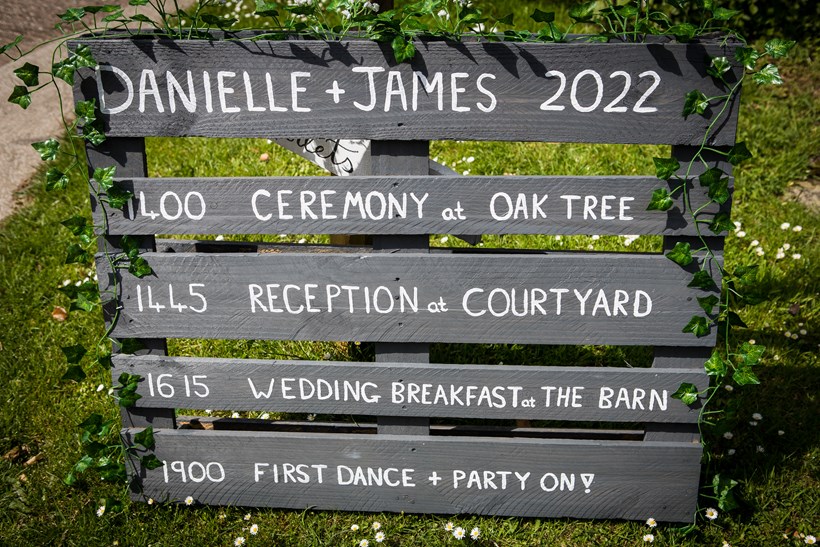 DANIELLE + JAMES 2022
1400 CEREMONY at OAK TREE
1445 RECEPTION at COURTYARD
1615 WEDDING BREAKFAST at THE BARN
1900 FIRST DANCE + PARTY ON!